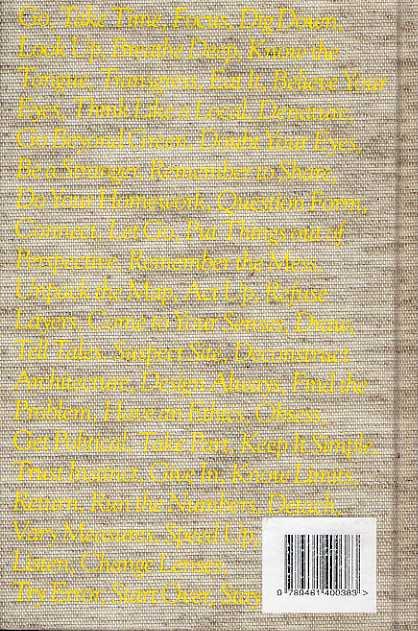 Go, Take Time, Focus, Dig Down,
Look Up, Breathe Deep, Know the
Tongue, Transgress, Eat It, Believe Your
Eyes, Think Like a Local,
Go Beyond Green, Doubt Your Eyes,
Be a Stranger, Remember to Share,
Do Your Homework, Question Form,
Connect, Let Go, Put Things out of
Perspective, Remember the Mess,
Unfold the Map, Act Up, Refuse
Layers, Come to Your Senses, Draw,
Tell Tales, Suspect Site, Deconstruct
Architecture, Design Always, Find the
Problem, Have an Ethics, Obsess,
Get Political, Take Part, Keep It Simple
Trust Instinct, Give In, Know Limits
Return, Run the Numbers, Detach,
Vary Measures, Speed Up
Listen, Change Lenses
Try Error, Start Over,
9 789461 400383 >